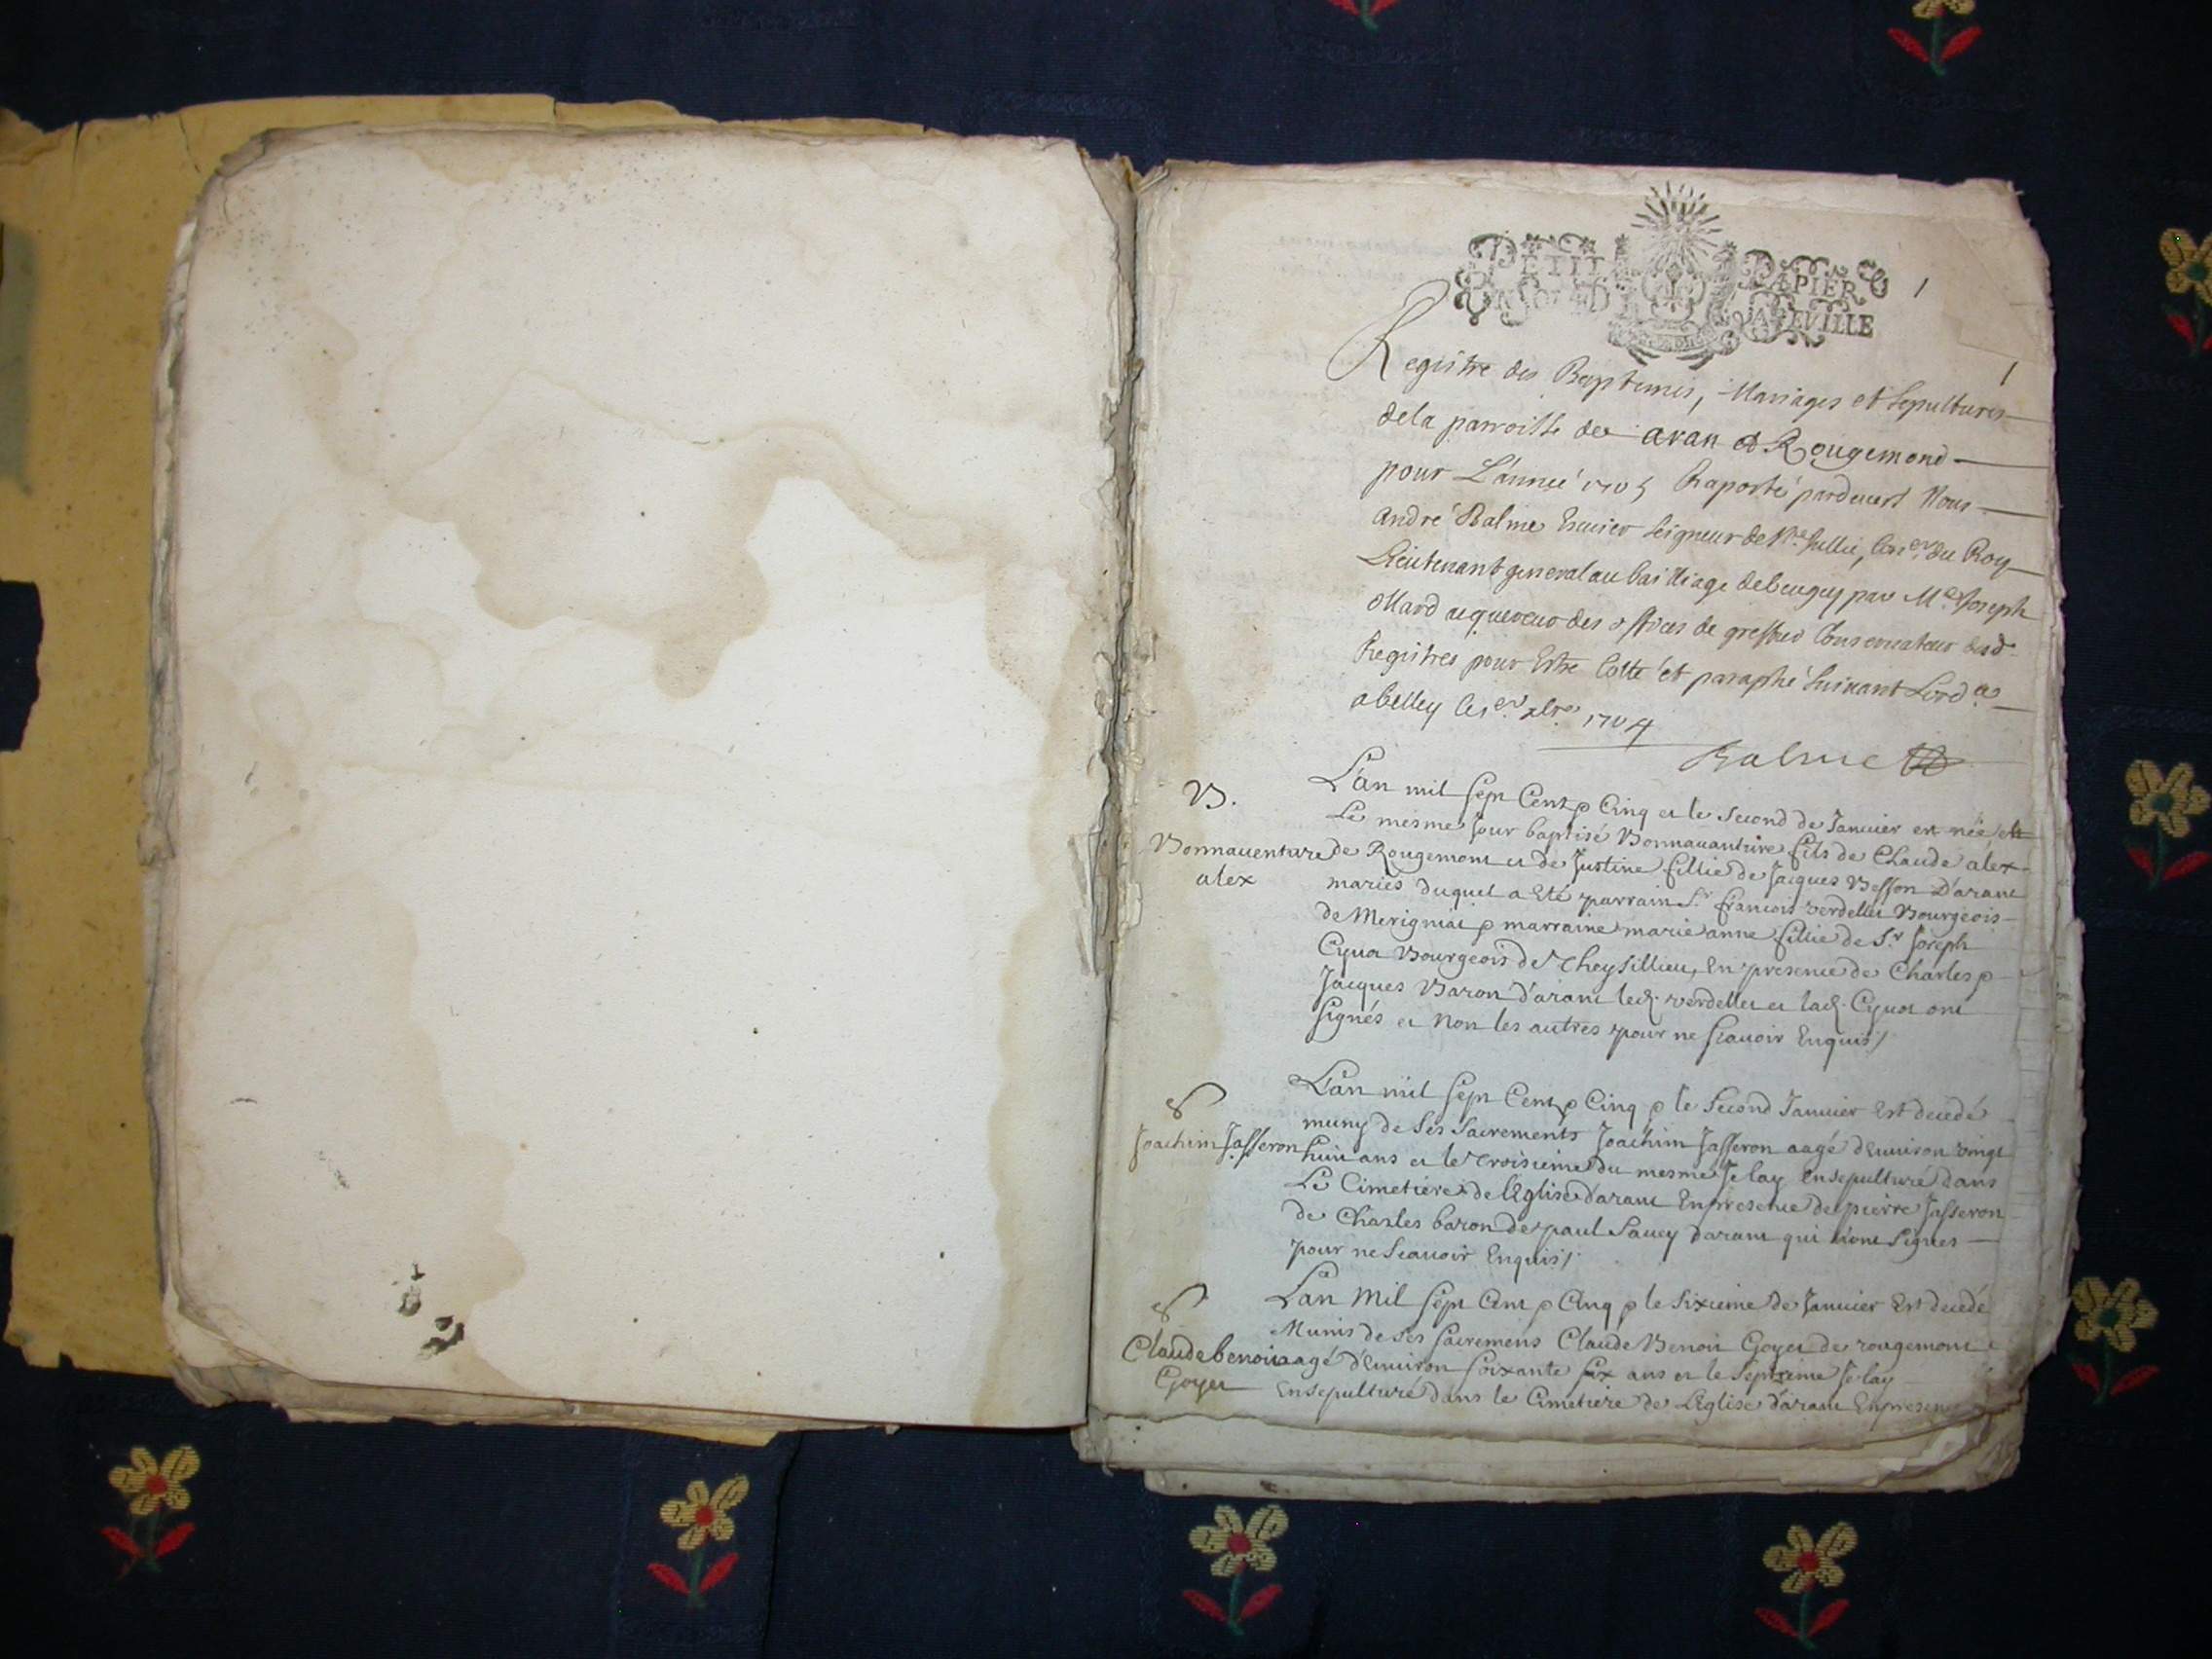 PETIT PAPIER
1
UN SOL LA FEVILLE
1
Registre des Baptemes, Mariages et Sepultures
de la parroisse de aran et Rougemond
pour L'année 1705 Raporté pardevert Nous
André Balme Escuier Seigneur de du Roy
Lieutenant general au bailliage de beugey par Me Joseph
des offices de greffier Conservateur desd.
Registres pour Estre Cotté et paraphé Suivant Lord.ce
a belley le 1er 1704
Balme
B.
L'an mil sept Cent & Cinq et le Second de Januier est née et
Le mesme Jour baptisé Bonnauanture fils de Claude alex
Bonnauenture de Rougemont et de Justine fillie de Jacques Besson D'arant
alex
mariés duquel a Eté parrain Sr. francois verdellet Bourgeois
de Merigniat & marraine marie anne fillie de Sr. Joseph
Cyuot Bourgeois de Cheysillieu, En presence de Charles &
Jacques Baron d'arant led. verdellet et lad. Cyuot ont
signés et Non les autres pour ne scauoir Enquis /
S
L'an mil sept Cent & Cinq & le Second Januier Est decedé
muny de ses Sacrements Joachim Jasseron aagé d'enuiron vingt
Joachim Jasseron
huit ans et le troisieme du mesme Je lay ensepulturé dans
Le Cimetiere de l'Eglise d'arant En presence de pierre Jasseron
de Charles baron de paul Sauey darant qui n'ont Signés
pour ne Scauoir Enquis /
S
L'an Mil Sept Cent & Cinq & le Sixieme de Januier Est decedé
Munis de ses sacremens Claude Benoit Goyet de rougemont
Claude benoit aagé d'Enuiron soixante six ans et le Septieme Je lay
Goyet
Ensepulturé dans le Cimetiere de L'Eglise d'arant En presence